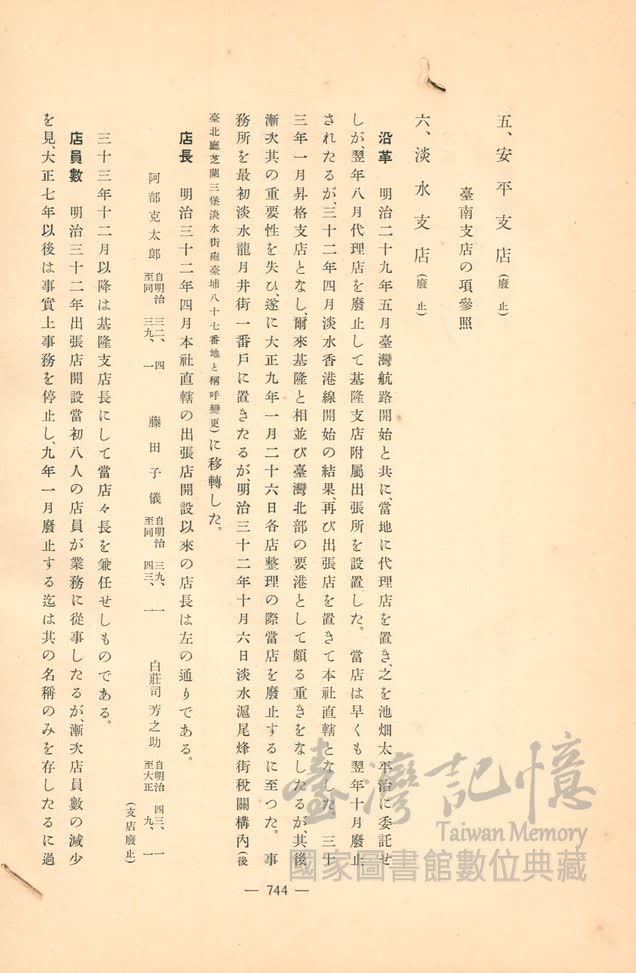 五、安平支店(廢止)
臺南支店の項參照
六、淡水支店(廢止)
沿革　明治二十九年五月臺灣航路開始と共に、當地に代理店を置き、之を池畑太平治に委託せ
しが、翌年八月代理店を廢止して基隆支店附屬出張所を設置した。當店は早くも翌年十月廢止
されたるが、三十二年四月淡水香港線開始の結果、再び出張店を置きて本社直轄となした。三十
三年一月昇格支店となし、爾來基隆と相並び臺灣北部の要港として頗る重きをなしたるが、其後
漸次其の重要性を失ひ、遂に大正九年一月二十六日各店整理の際當店を廢止するに至つた。事
務所を最初淡水龍月井街一番戶に置きたるが、明治三十二年十月六日淡水滬尾烽街稅關構內(後
臺北廳芝蘭三堡淡水街砲臺埔八十七番地と稱呼變更)に移轉した。
店長　明治三十二年四月本社直轄の出張店開設以來の店長は左の通りである。
阿部克太郎　自明治三二、四　至同三九、一　藤田子儀　自明治三九、一　至同四三、一　白莊司芳之助　自明治四三、一　至大正九、一
(支店廢止)
三十三年十二月以降は基隆支店長にして當店々長を兼任せしものである。
店員數　明治三十二年出張店開設當初八人の店員が業務に從事したるが、漸次店員數の減少
を見、大正七年以後は事實上事務を停止し、九年一月廢止する迄は其の名稱のみを存したるに過
— 744 —
臺灣記憶
Taiwan Memory
國家圖書館數位典藏